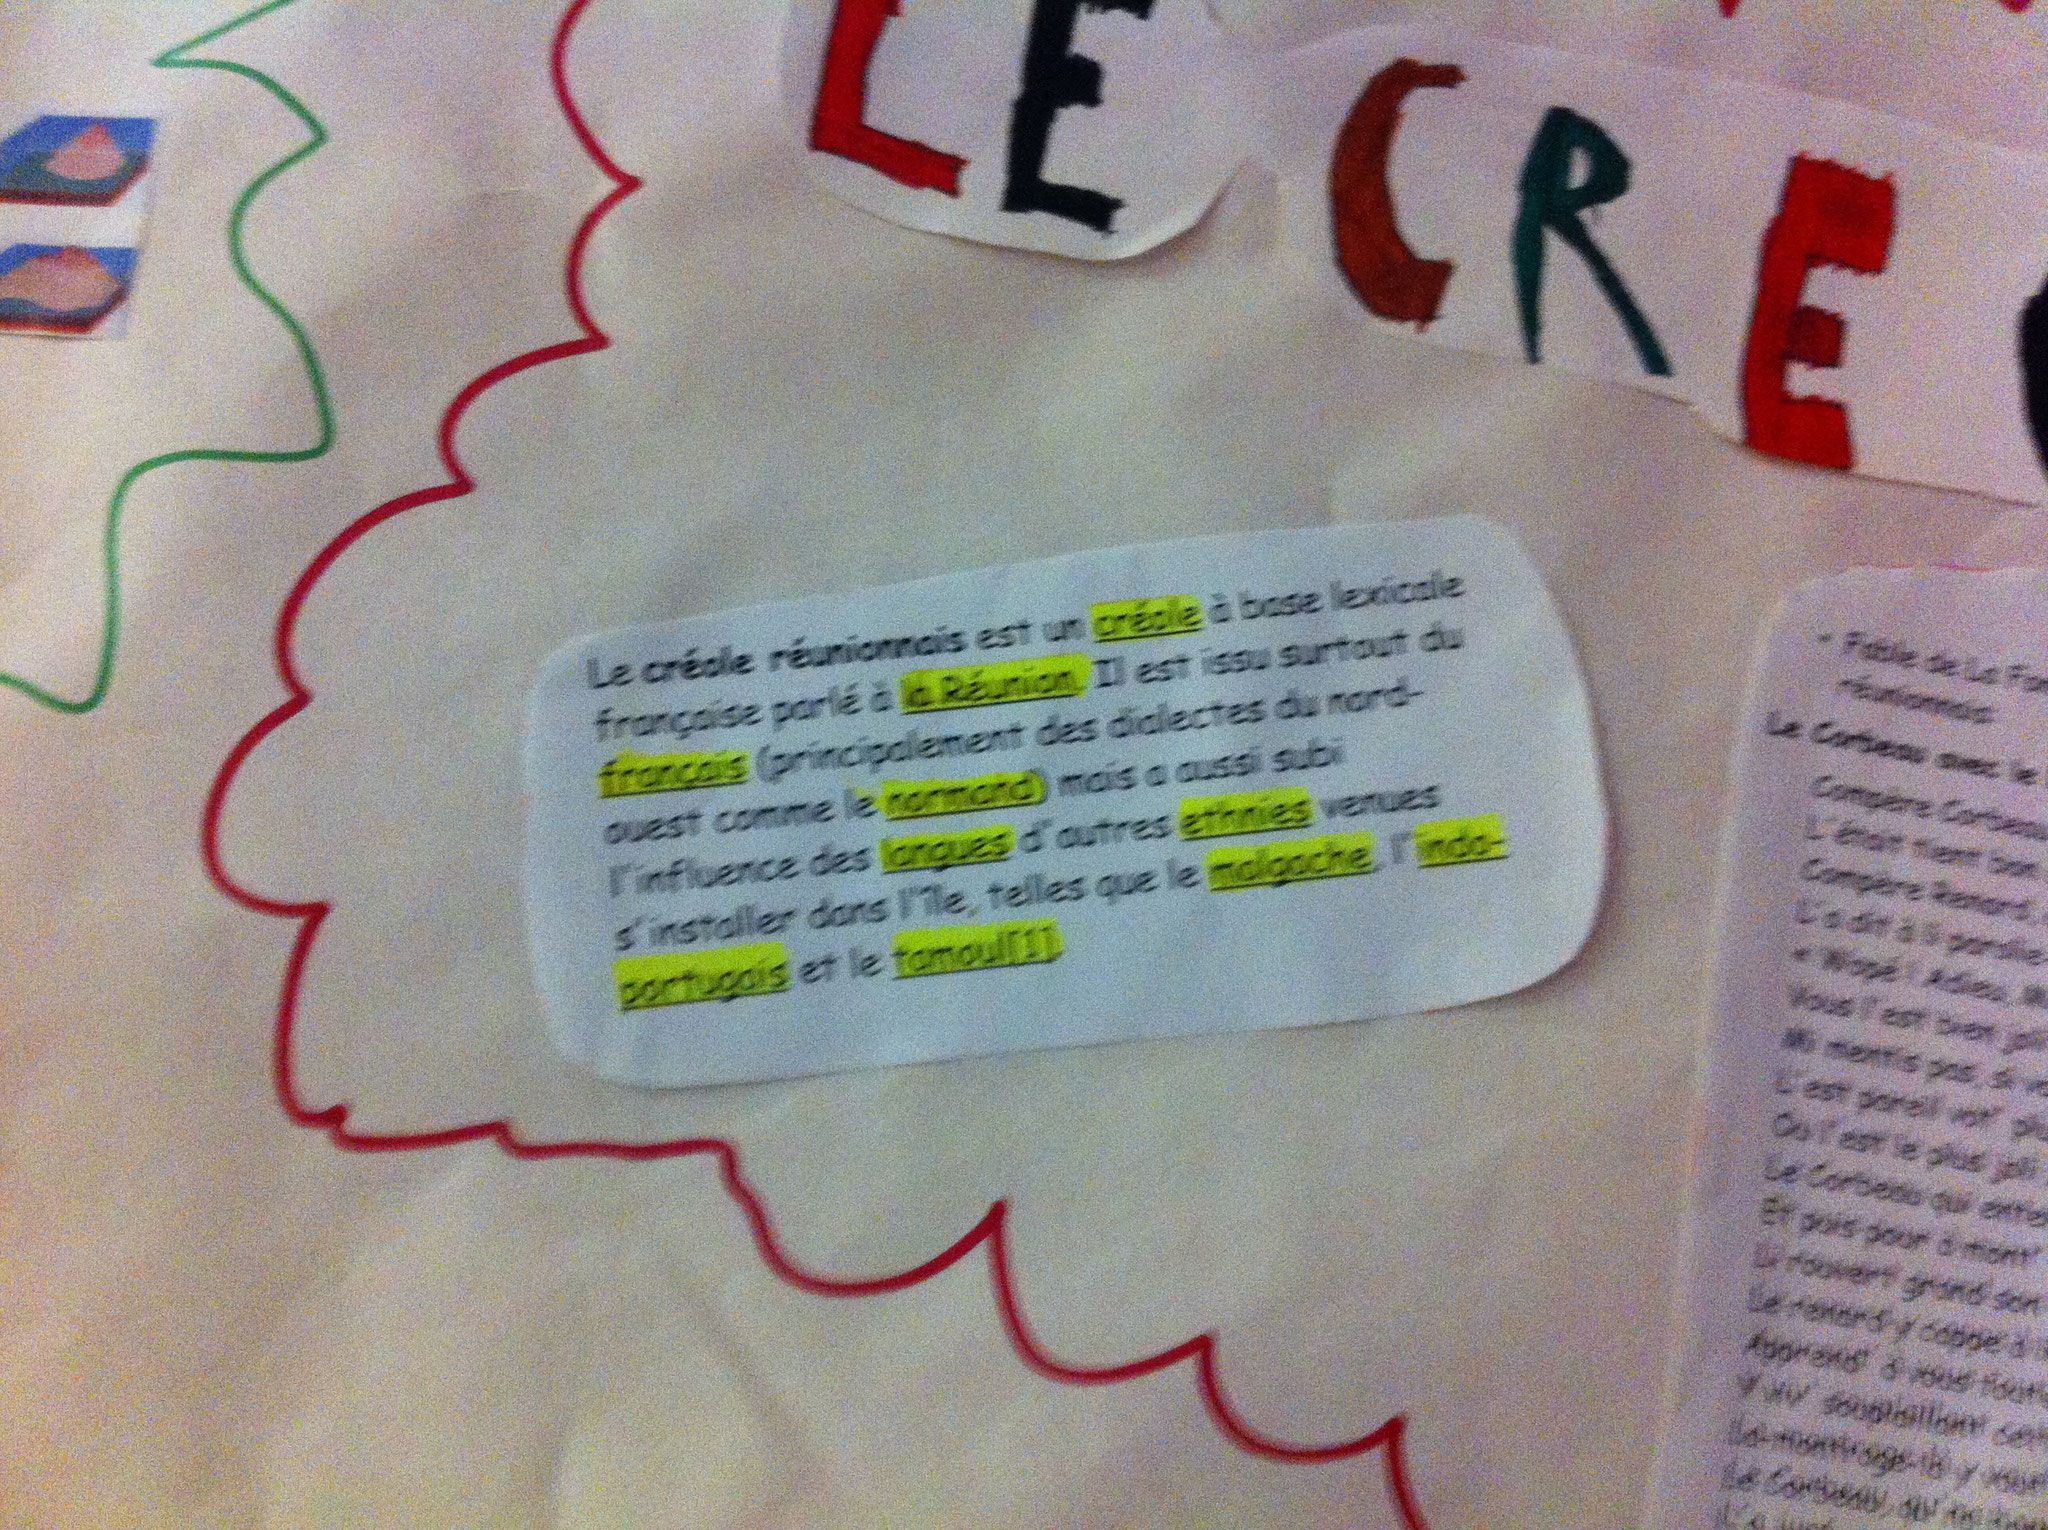 LE CRE
Le créole réunionnais est un créole à base lexicale
française parlé à la Réunion. Il est issu surtout du
français (principalement des dialectes du nord-
ouest comme le normand) mais a aussi subi
l'influence des langues d'autres ethnies venues
s'installer dans l'île, telles que le malgache, l'indo-
portugais et le tamoul[1].
- Fable de La Fon
réunionnais
Le Corbeau avec le
Compère Corbeau
L'était tient bon
Compère Renard,
L'a dit à li
Adieu,
Vous l'est bien joli
Mi mentis pas, si vo
L'est pareil vot' plu
Ou l'est le plus joli
Le Corbeau qui enten
Et puis pour a mont'
Li rouvert grand son
Le renard y
à vous
Le Corbeau,